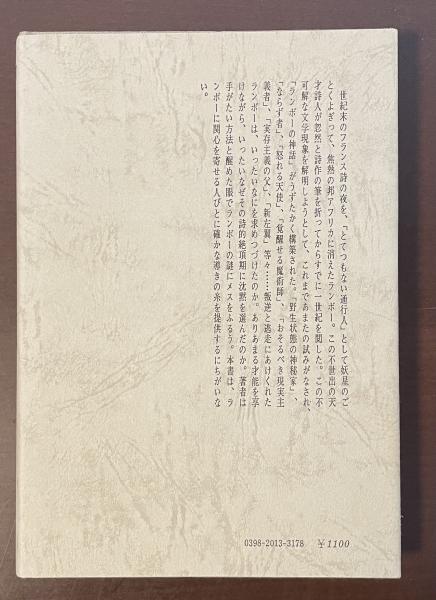 世紀末のフランス詩の夜を、「とてつもない通行人」として妖星のご
とくよぎって、焦熱の邦アフリカに消えたランボー。この不世出の天
才詩人が忽然と詩作の筆を折ってからすでに一世紀を閲した。この不
可解な文学現象を解明しようとして、これまであまたの試みがなされ、
「ランボーの神話」がうずたかく構築された。「野生状態の神秘家」、
「ならず者」、「怒れる天使」、「覚醒せる魔術師」、「おそるべき現実主
義者」、「実存主義の父」、「新左翼」等々……叛逆と逃走にあけくれた
ランボーは、いったいなにを求めつづけたのか。ありあまる才能を享
けながら、いったいなぜその詩的絶頂期に沈黙を選んだのか。著者は
手がたい方法と醒めた眼でランボーの謎にメスをふるう。本書は、ラ
ンボーに関心を寄せる人びとに確かな導きの糸を提供するにちがいな
い。
0398-2013-3178 ¥1100